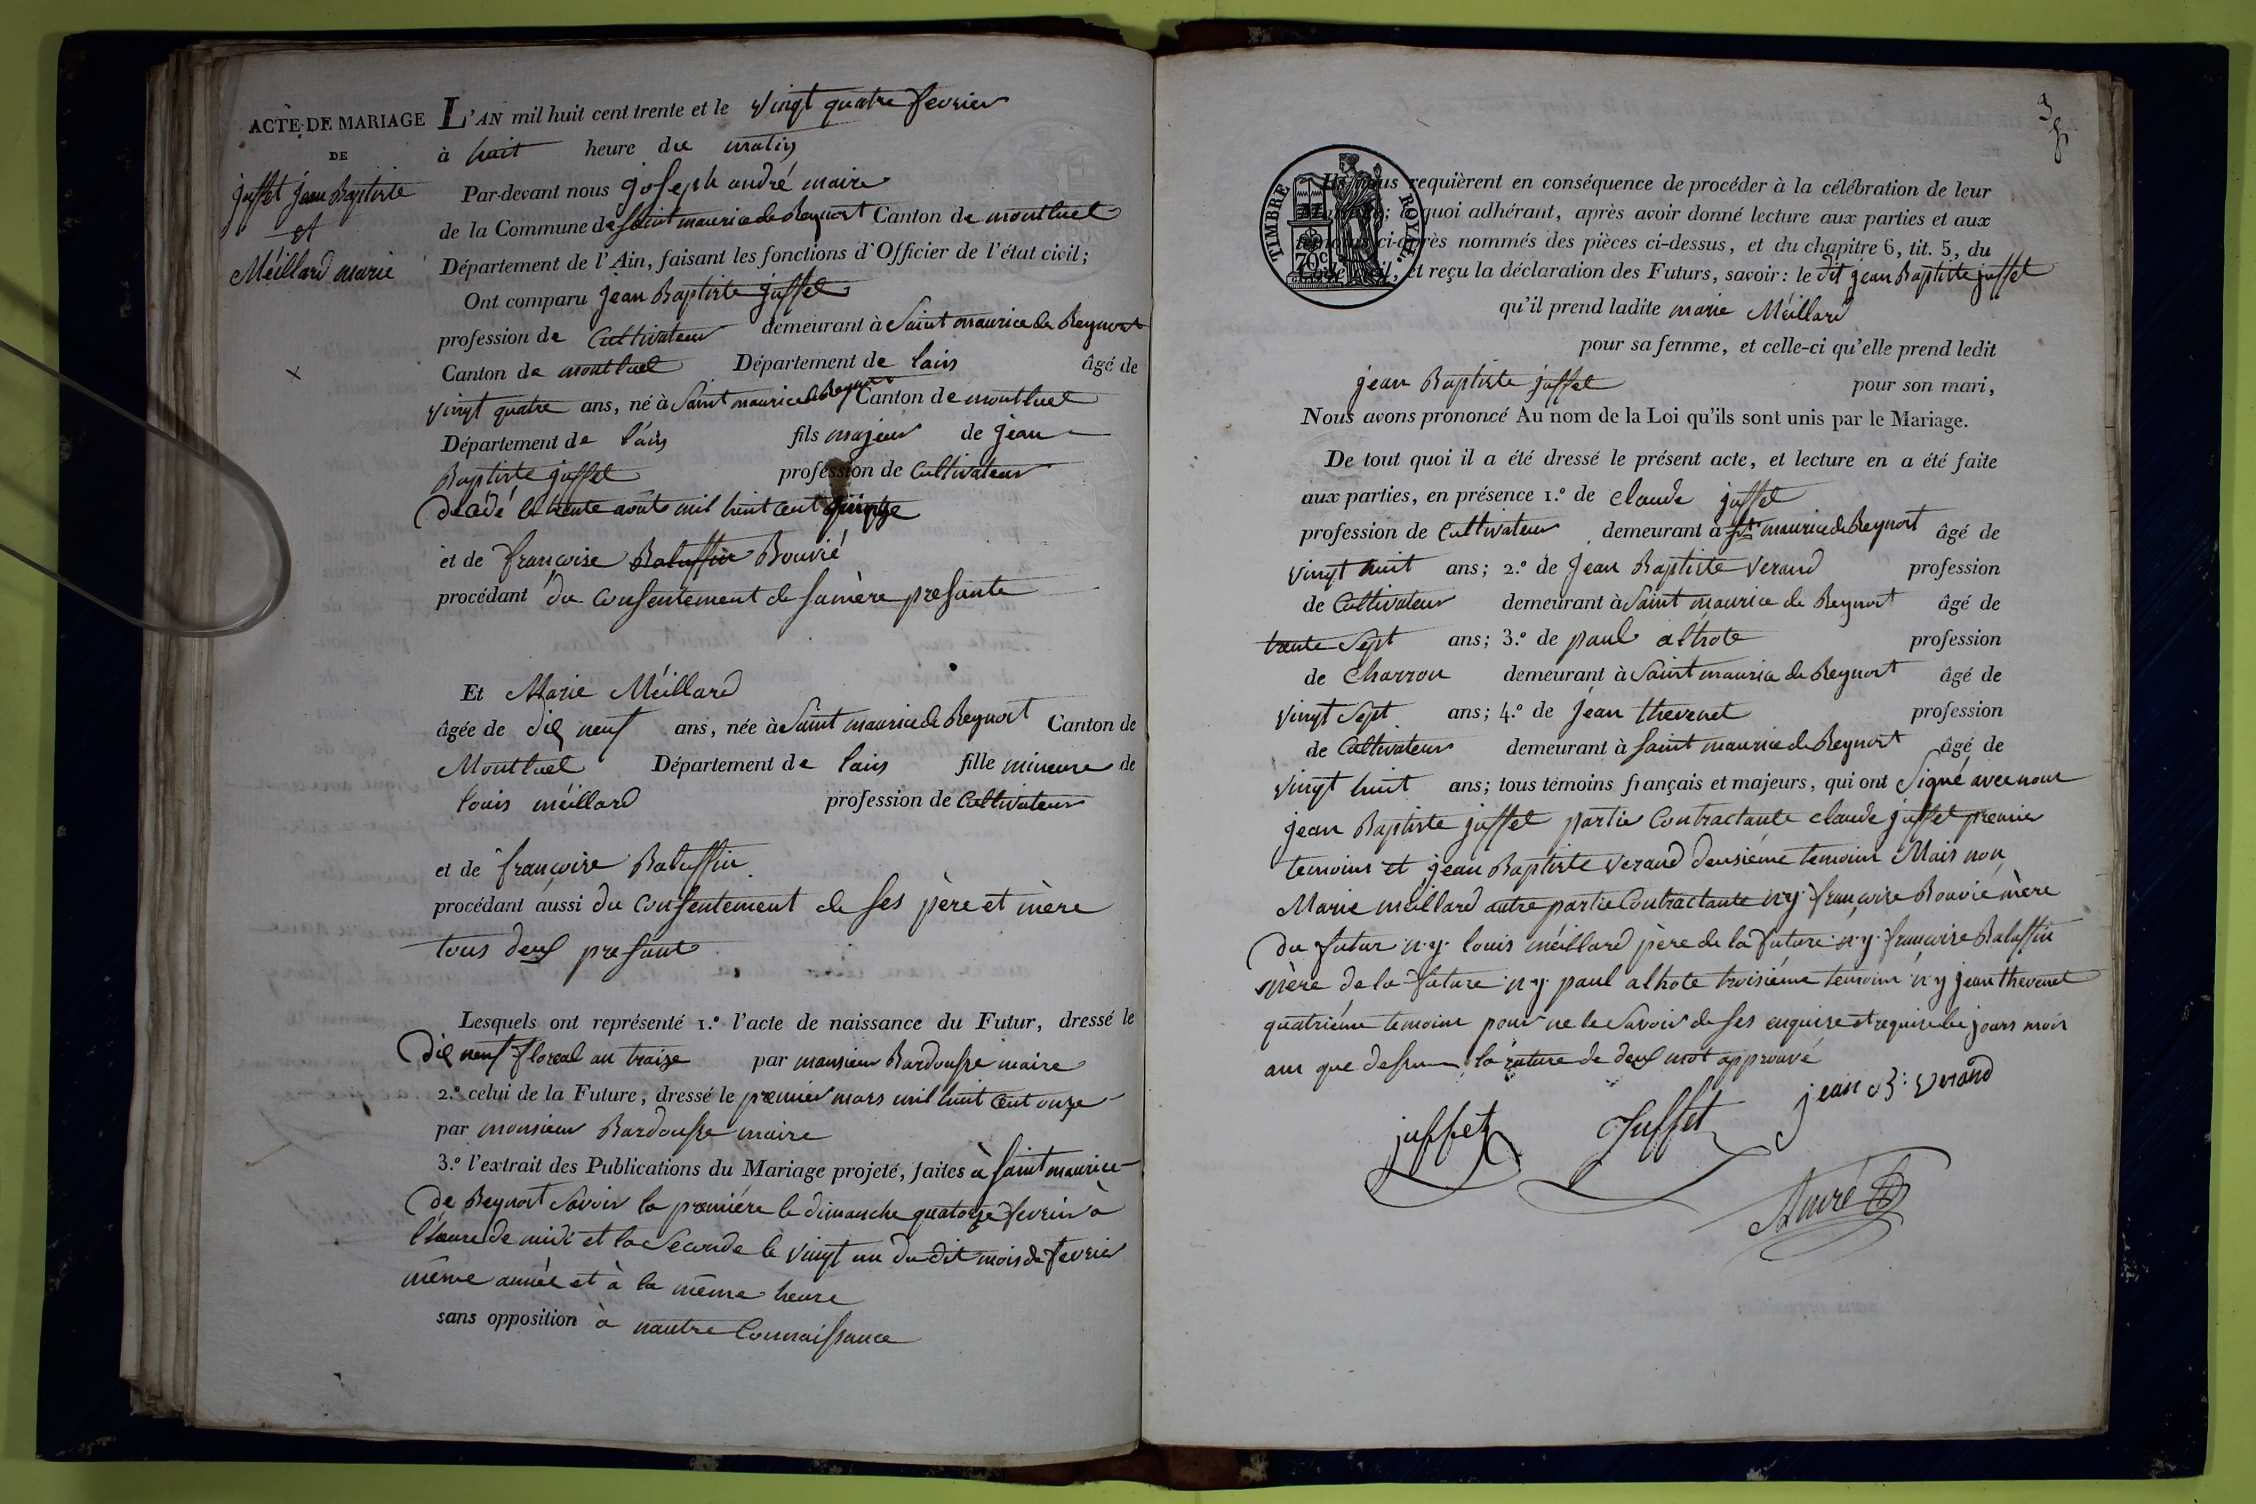 ACTE DE MARIAGE
DE
juffet jean Baptiste
et
Méillard marie
L'AN mil huit cent trente et le vingt quatre fevrier
à huit heure du matin
Par-devant nous joseph andré maire
de la Commune de Saint maurice de Beynost Canton de montluel
Département de l'Ain, faisant les fonctions d'Officier de l'état civil;
Ont comparu jean Baptiste juffet
profession de Cultivateur demeurant à Saint maurice de Beynost
Canton de montluel Département de lain âgé de
vingt quatre ans, né à Saint maurice de Beynost Canton de montluel
Département de l'ain fils majeur de jean
Baptiste juffet profession de Cultivateur
décédé le trente août mil huit cent quinze
et de françoise Baluffin Bouvié
procédant du consentement de sa mère presante
Et Marie Méillard
âgée de dix neuf ans, née à Saint maurice de Beynost Canton de
Montluel Département de lain fille mineure de
louis méillard profession de Cultivateur
et de françoise Baluffin
procédant aussi du consentement de ses père et mère
tous deux presant
Lesquels ont représenté 1.º l'acte de naissance du Futur, dressé le
dix neuf floreal an traize par monsieur Bardousse maire
2.º celui de la Future, dressé le premier mars mil huit cent onze
par monsieur Bardousse maire
3.º l'extrait des Publications du Mariage projeté, faites à Saint maurice
de Beynost savoir la premiére le dimanche quatorze fevrier à
l'heure de midi et la seconde le vingt un du dit mois de fevrier
même année et à la même heure
sans opposition à nautre Connaissance
38
TIMBRE ROYAL
70c
Ils nous requièrent en conséquence de procéder à la célébration de leur
Mariage; à quoi adhérant, après avoir donné lecture aux parties et aux
témoins ci-après nommés des pièces ci-dessus, et du chapitre 6, tit. 5, du
Code civil, et reçu la déclaration des Futurs, savoir: le dit jean Baptiste juffet
qu'il prend ladite marie Méillard
pour sa femme, et celle-ci qu'elle prend ledit
jean Baptiste juffet pour son mari,
Nous avons prononcé Au nom de la Loi qu'ils sont unis par le Mariage.
De tout quoi il a été dressé le présent acte, et lecture en a été faite
aux parties, en présence 1.º de claude juffet
profession de Cultivateur demeurant à St maurice de Beynost âgé de
vingt huit ans; 2.º de Jean Baptiste Verand profession
de Cultivateur demeurant à Saint maurice de Beynost âgé de
trante Sept ans; 3.º de paul alhote profession
de Charron demeurant à Saint maurice de Beynost âgé de
vingt Sept ans; 4.º de Jean thevenet profession
de Cultivateur demeurant à Saint maurice de Beynost âgé de
vingt huit ans; tous témoins français et majeurs, qui ont Signé avec nous
jean Baptiste juffet partie Contractante claude juffet premier
temoins et jean Baptiste Verand deusiéme temoins Mais non
Marie meillard autre partie Contractante n'y françoise Bouvié mère
du futur n'y louis méillard père de la future n'y françoise Baluffin
mère de la future n'y paul alhote troisiéme temoins n'y jean thevenet
quatriéme temoins pour ne le Savoir de ses enquise et requise les jours mois
an que dessus la rature de deux mot approuvé
juffet Juffet jean B: Verand
André